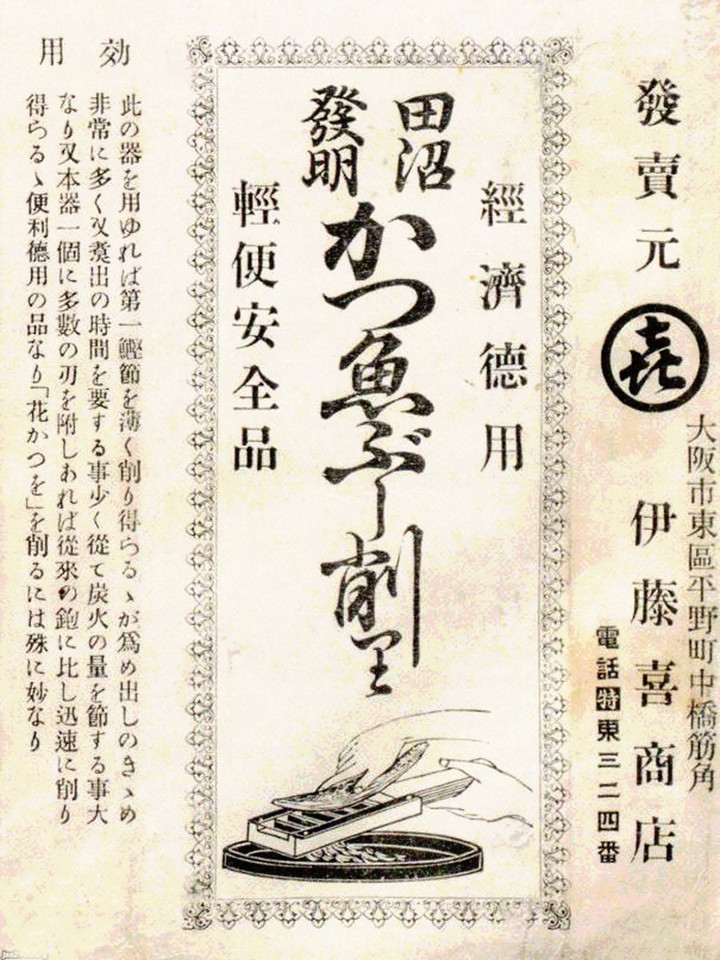 發賣元
㐂
大阪市東區平野町中橋筋角
伊藤喜商店
電話特東三二四番
經濟德用
田沼
發明
かつ魚ぶし削里
輕便安全品
効用
此の器を用ゆれば第一鰹節を薄く削り得らるゝが爲め出しのきゝめ
非常に多く又煑出の時間を要する事少く從て炭火の量を節する事大
なり又本器一個に多數の刃を附しあれば從來の鉋に比し迅速に削り
得らるゝ便利德用の品なり「花かつを」を削るには殊に妙なり